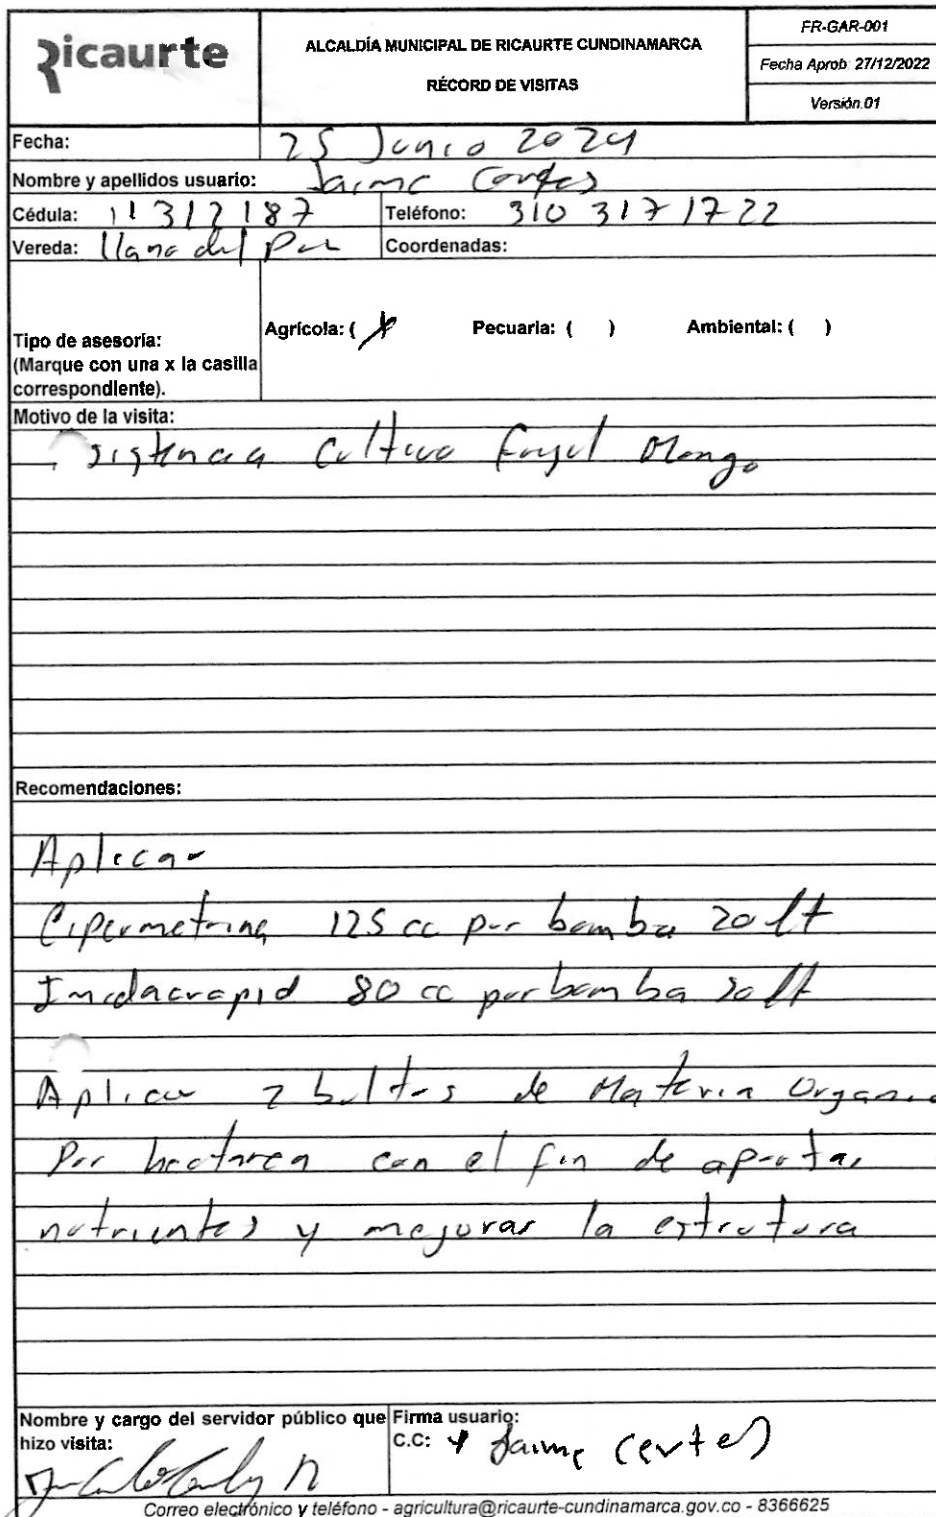 Ricaurte
ALCALDÍA MUNICIPAL DE RICAURTE CUNDINAMARCA
RÉCORD DE VISITAS
FR-GAR-001
Fecha Aprob: 27/12/2022
Versión.01
Fecha: 25 Junio 2024
Nombre y apellidos usuario: Jaime Cortes
Cédula: 11312187 Teléfono: 310 317 1722
Vereda: llano del Coordenadas:
Tipo de asesoría:
(Marque con una x la casilla
correspondiente).
Agrícola: ( X Pecuaria: ( ) Ambiental: ( )
Motivo de la visita:
sistencia Cultivo Mango
Recomendaciones:
Aplicar
Cipermetrina 125 cc por bomba 20 lt
80 cc por bomba 20 lt
Aplicar 2 bultos de Materia Organ
Por hectarea con el fin de aportar
nutrientes y mejorar la estrutura
Nombre y cargo del servidor público que
hizo visita:
Firma usuario:
C.C: x Jaime Cortes
Correo electrónico y teléfono - agricultura@ricaurte-cundinamarca.gov.co - 8366625